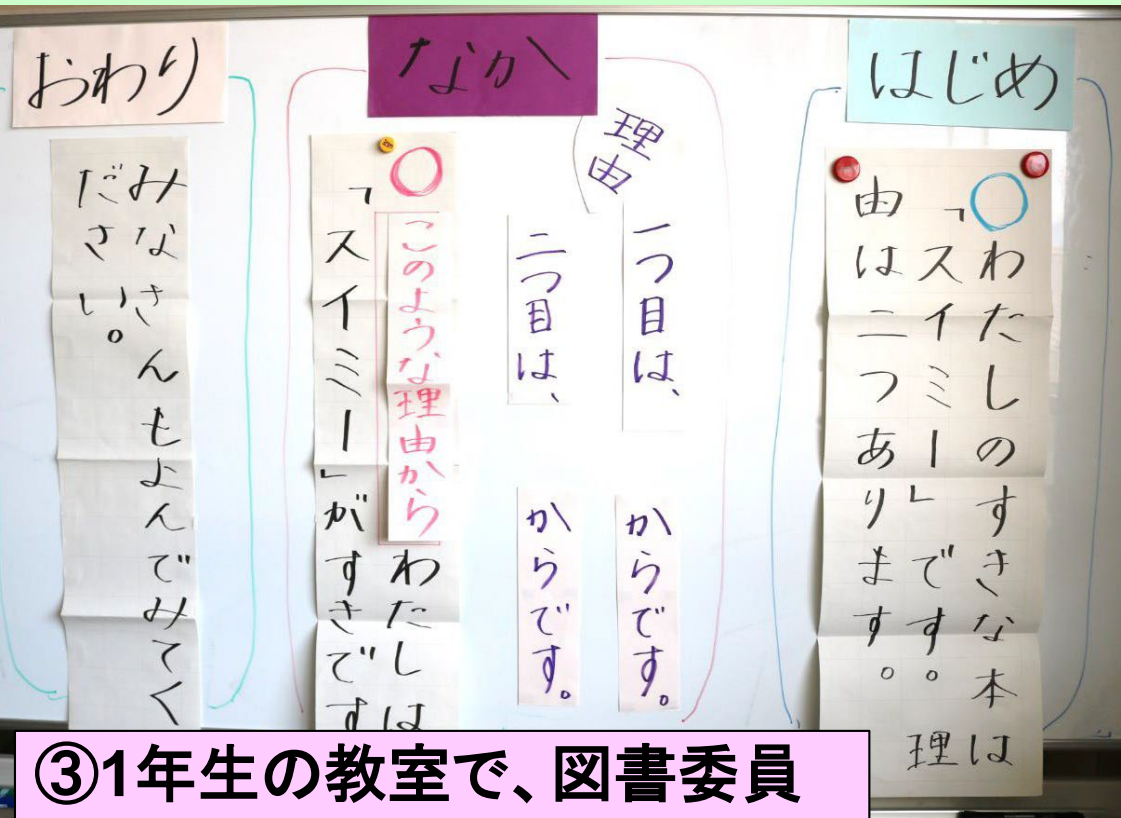 はじめ
○わたしのすきな本は
「スイミー」です。理
由は二つあります。
なか
理由
一つ目は、
からです。
二つ目は、
からです。
○このような理由からわたしは
「スイミー」がすきです
おわり
みなさんもよんでみてく
ださい。
③1年生の教室で、図書委員